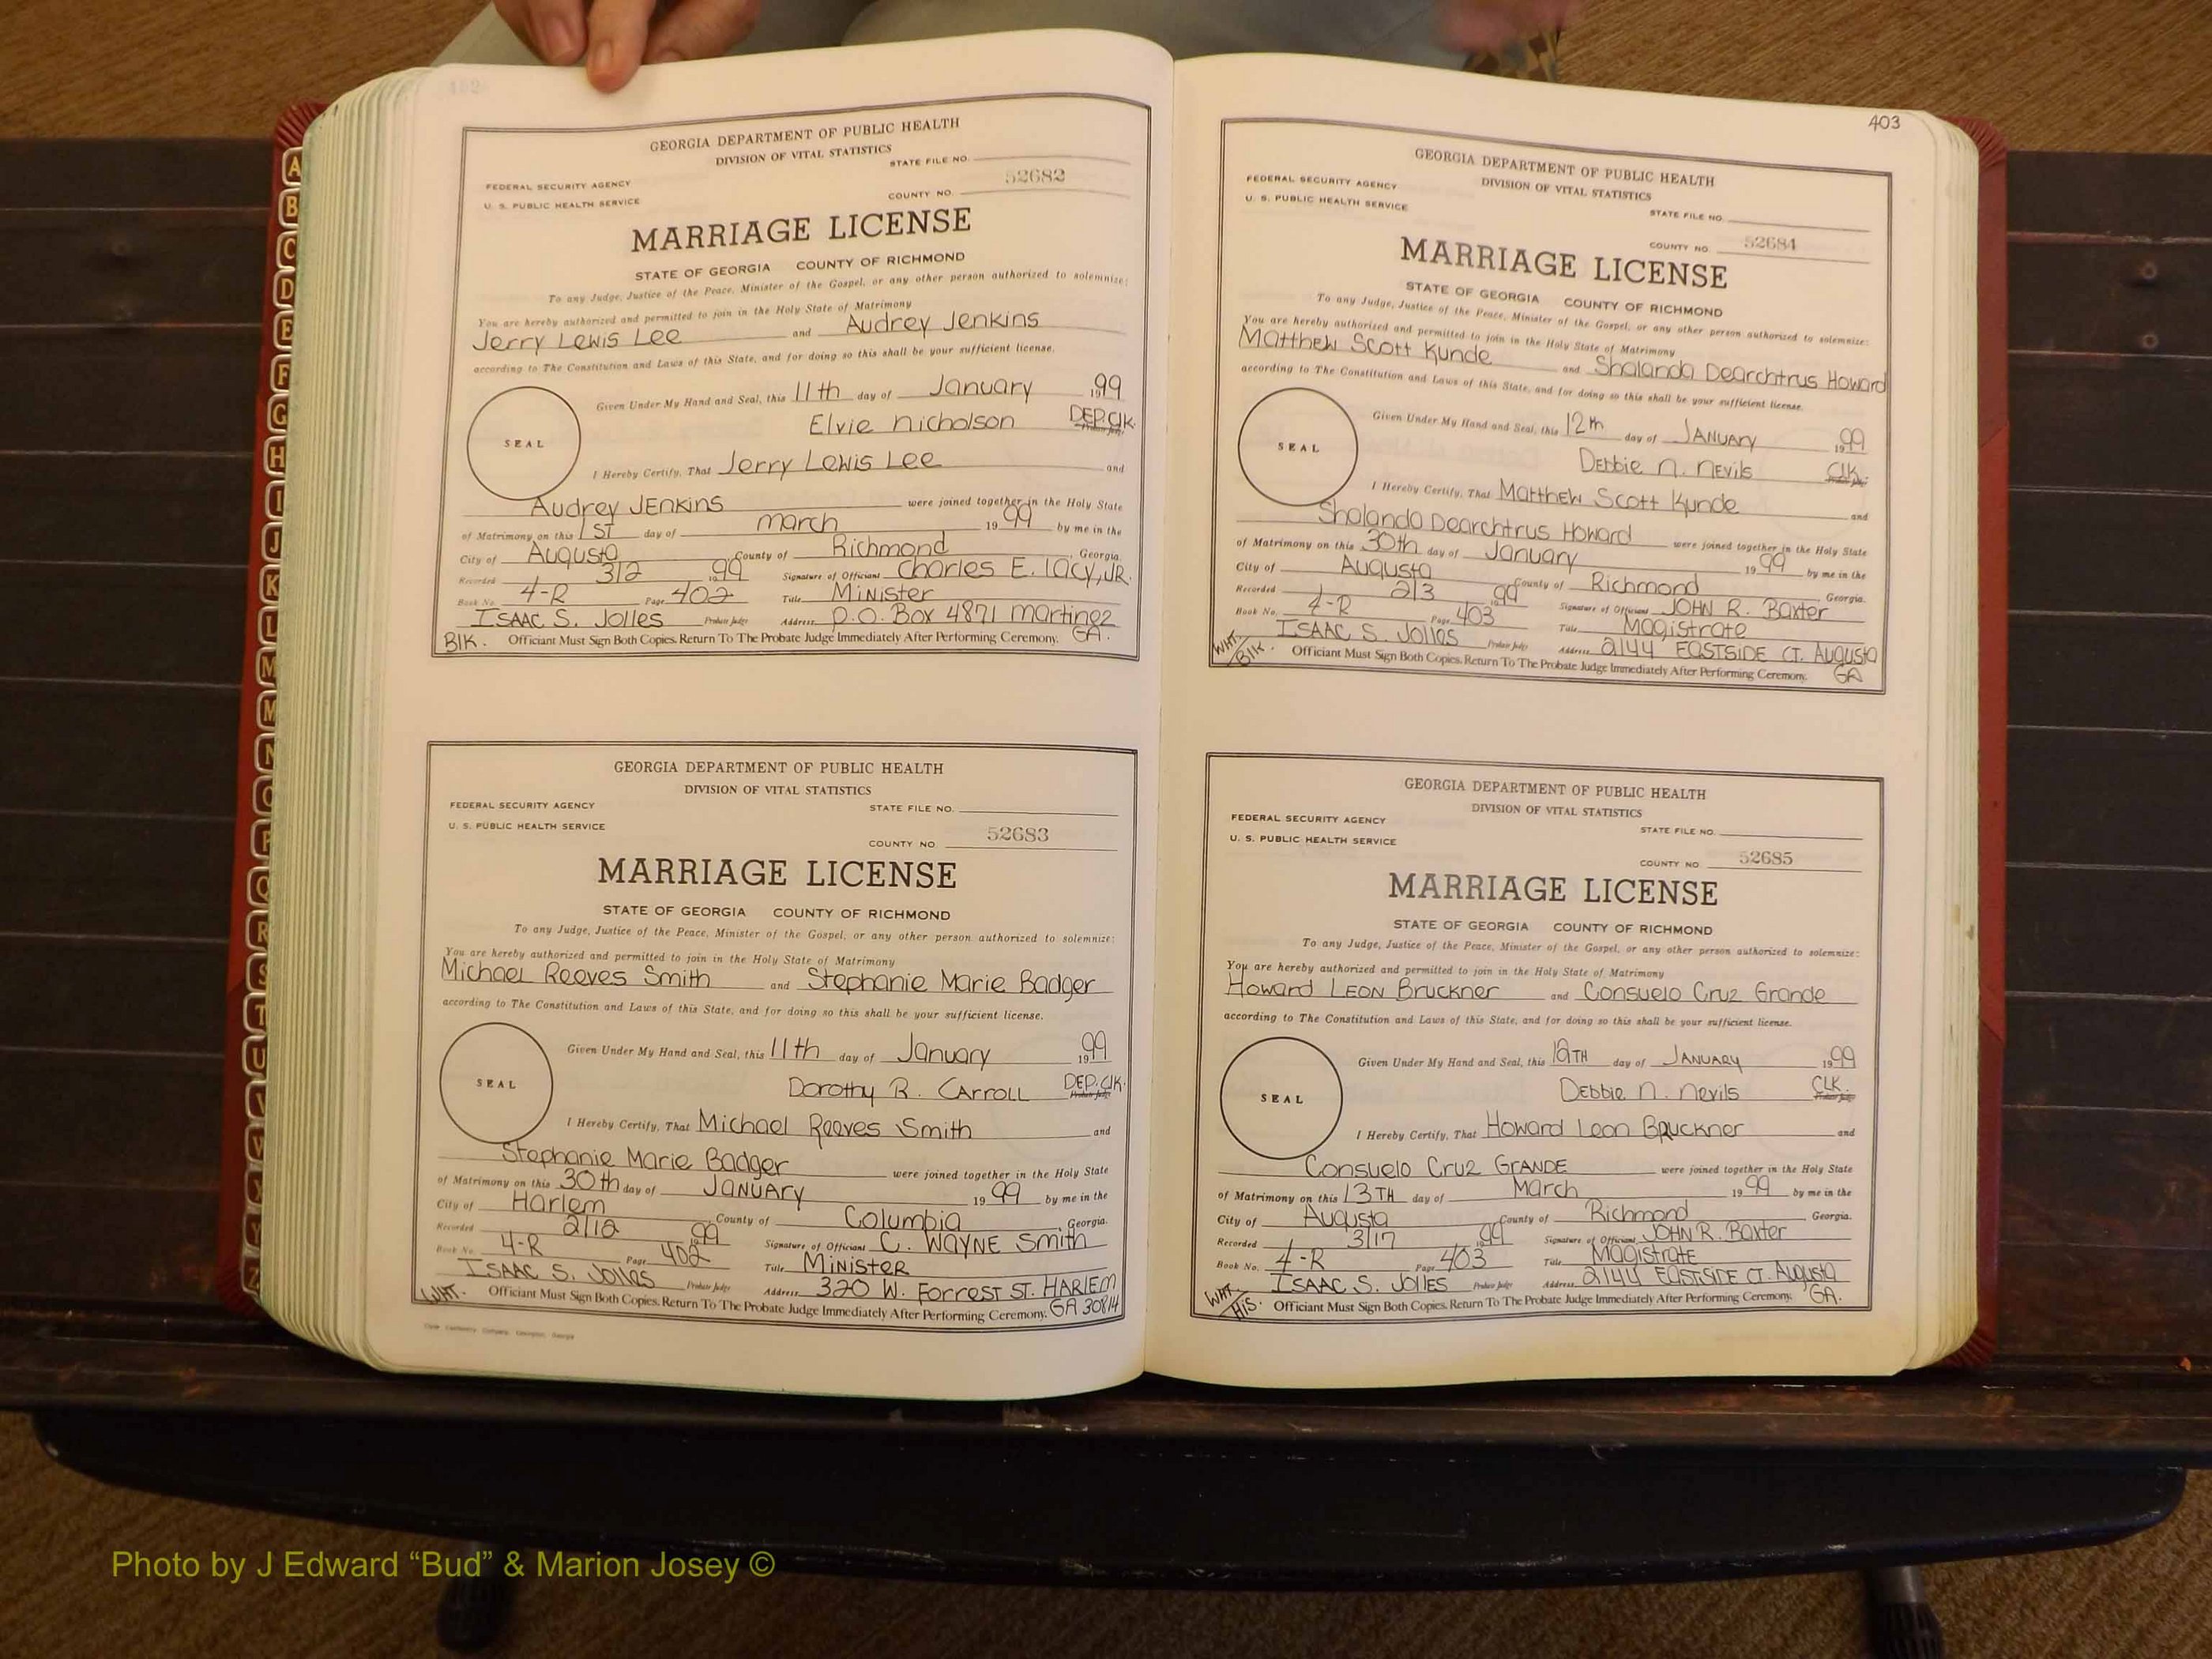 GEORGIA DEPARTMENT OF PUBLIC HEALTH
DIVISION OF VITAL STATISTICS
STATE FILE NO.
FEDERAL SECURITY AGENCY
U. S. PUBLIC HEALTH SERVICE
COUNTY NO. 52682
MARRIAGE LICENSE
STATE OF GEORGIA COUNTY OF RICHMOND
To any Judge, Justice of the Peace, Minister of the Gospel, or any other person authorized to solemnize:
You are hereby authorized and permitted to join in the Holy State of Matrimony
Jerry Lewis Lee and Audrey Jenkins
according to The Constitution and Laws of this State, and for doing so this shall be your sufficient license.
Given Under My Hand and Seal, this 11th day of January 1999
Elvie Nicholson DEP. Clk.
Probate Judge
SEAL
I Hereby Certify, That Jerry Lewis Lee and
Audrey JENKINS were joined together in the Holy State
of Matrimony on this 1ST day of march 1999 by me in the
City of Augusta County of Richmond, Georgia.
Recorded 3/2 1999 Signature of Officiant Charles E. Lacy, JR.
Book No. 4-R Page 402 Title Minister
ISAAC S. Jolles Probate Judge Address P.O. Box 4871 Martinez GA.
Blk. Officiant Must Sign Both Copies. Return To The Probate Judge Immediately After Performing Ceremony.
GEORGIA DEPARTMENT OF PUBLIC HEALTH
DIVISION OF VITAL STATISTICS
FEDERAL SECURITY AGENCY
STATE FILE NO.
U. S. PUBLIC HEALTH SERVICE
COUNTY NO. 52683
MARRIAGE LICENSE
STATE OF GEORGIA COUNTY OF RICHMOND
To any Judge, Justice of the Peace, Minister of the Gospel, or any other person authorized to solemnize:
You are hereby authorized and permitted to join in the Holy State of Matrimony
Michael Reeves Smith and Stephanie Marie Badger
according to The Constitution and Laws of this State, and for doing so this shall be your sufficient license.
Given Under My Hand and Seal, this 11th day of January 1999
SEAL
Dorothy R. Carroll DEP. Clk.
Probate Judge
I Hereby Certify, That Michael Reeves Smith and
Stephanie Marie Badger were joined together in the Holy State
of Matrimony on this 30th day of JANUARY 1999 by me in the
City of Harlem County of Columbia, Georgia.
Recorded 2/12 1999 Signature of Officiant C. WAYNE Smith
Book No. 4-R Page 402 Title MINISTER
ISAAC S. Jolles Probate Judge Address 320 W. FORREST ST. HARLEM GA 30814
WHT. Officiant Must Sign Both Copies. Return To The Probate Judge Immediately After Performing Ceremony.
403
GEORGIA DEPARTMENT OF PUBLIC HEALTH
DIVISION OF VITAL STATISTICS
FEDERAL SECURITY AGENCY
U. S. PUBLIC HEALTH SERVICE
STATE FILE NO.
COUNTY NO. 52684
MARRIAGE LICENSE
STATE OF GEORGIA COUNTY OF RICHMOND
To any Judge, Justice of the Peace, Minister of the Gospel, or any other person authorized to solemnize:
You are hereby authorized and permitted to join in the Holy State of Matrimony
Matthew Scott Kunde and Shalanda Dearchtrus Howard
according to The Constitution and Laws of this State, and for doing so this shall be your sufficient license.
Given Under My Hand and Seal, this 12th day of JANUARY 1999
SEAL
Debbie N. Nevils Clk.
Probate Judge
I Hereby Certify, That Matthew Scott Kunde and
Shalanda Dearchtrus Howard were joined together in the Holy State
of Matrimony on this 30th day of January 1999 by me in the
City of Augusta County of Richmond Georgia.
Recorded 2/3 1999 Signature of Officiant JOHN R. Baxter
Book No. 4-R Page 403 Title Magistrate
ISAAC S. Jolles Probate Judge Address 2144 EASTSIDE CT. Augusta GA
WHT. / Blk. Officiant Must Sign Both Copies. Return To The Probate Judge Immediately After Performing Ceremony.
GEORGIA DEPARTMENT OF PUBLIC HEALTH
DIVISION OF VITAL STATISTICS
FEDERAL SECURITY AGENCY
STATE FILE NO.
U. S. PUBLIC HEALTH SERVICE
COUNTY NO 52685
MARRIAGE LICENSE
STATE OF GEORGIA COUNTY OF RICHMOND
To any Judge, Justice of the Peace, Minister of the Gospel, or any other person authorized to solemnize:
You are hereby authorized and permitted to join in the Holy State of Matrimony
Howard LEON Bruckner and Consuelo Cruz Grande
according to The Constitution and Laws of this State, and for doing so this shall be your sufficient license.
Given Under My Hand and Seal, this 12TH day of JANUARY 1999
SEAL
Debbie N. Nevils CLK.
Probate Judge
I Hereby Certify, That Howard Leon Bruckner and
Consuelo Cruz GRANDE were joined together in the Holy State
of Matrimony on this 13TH day of March 1999 by me in the
City of Augusta County of Richmond Georgia.
Recorded 3/17 1999 Signature of Officiant JOHN R. Baxter
Book No. 4-R Page 403 Title Magistrate
ISAAC S. Jolles Probate Judge Address 2144 EASTSIDE CT. Augusta GA.
WHT / HIS. Officiant Must Sign Both Copies. Return To The Probate Judge Immediately After Performing Ceremony.
A
B
C
D
E
F
G
H
I
J
K
L
M
M
N
O
P
Q
R
S
T
U
V
W
X
Y
Z
Photo by J Edward “Bud” & Marion Josey ©